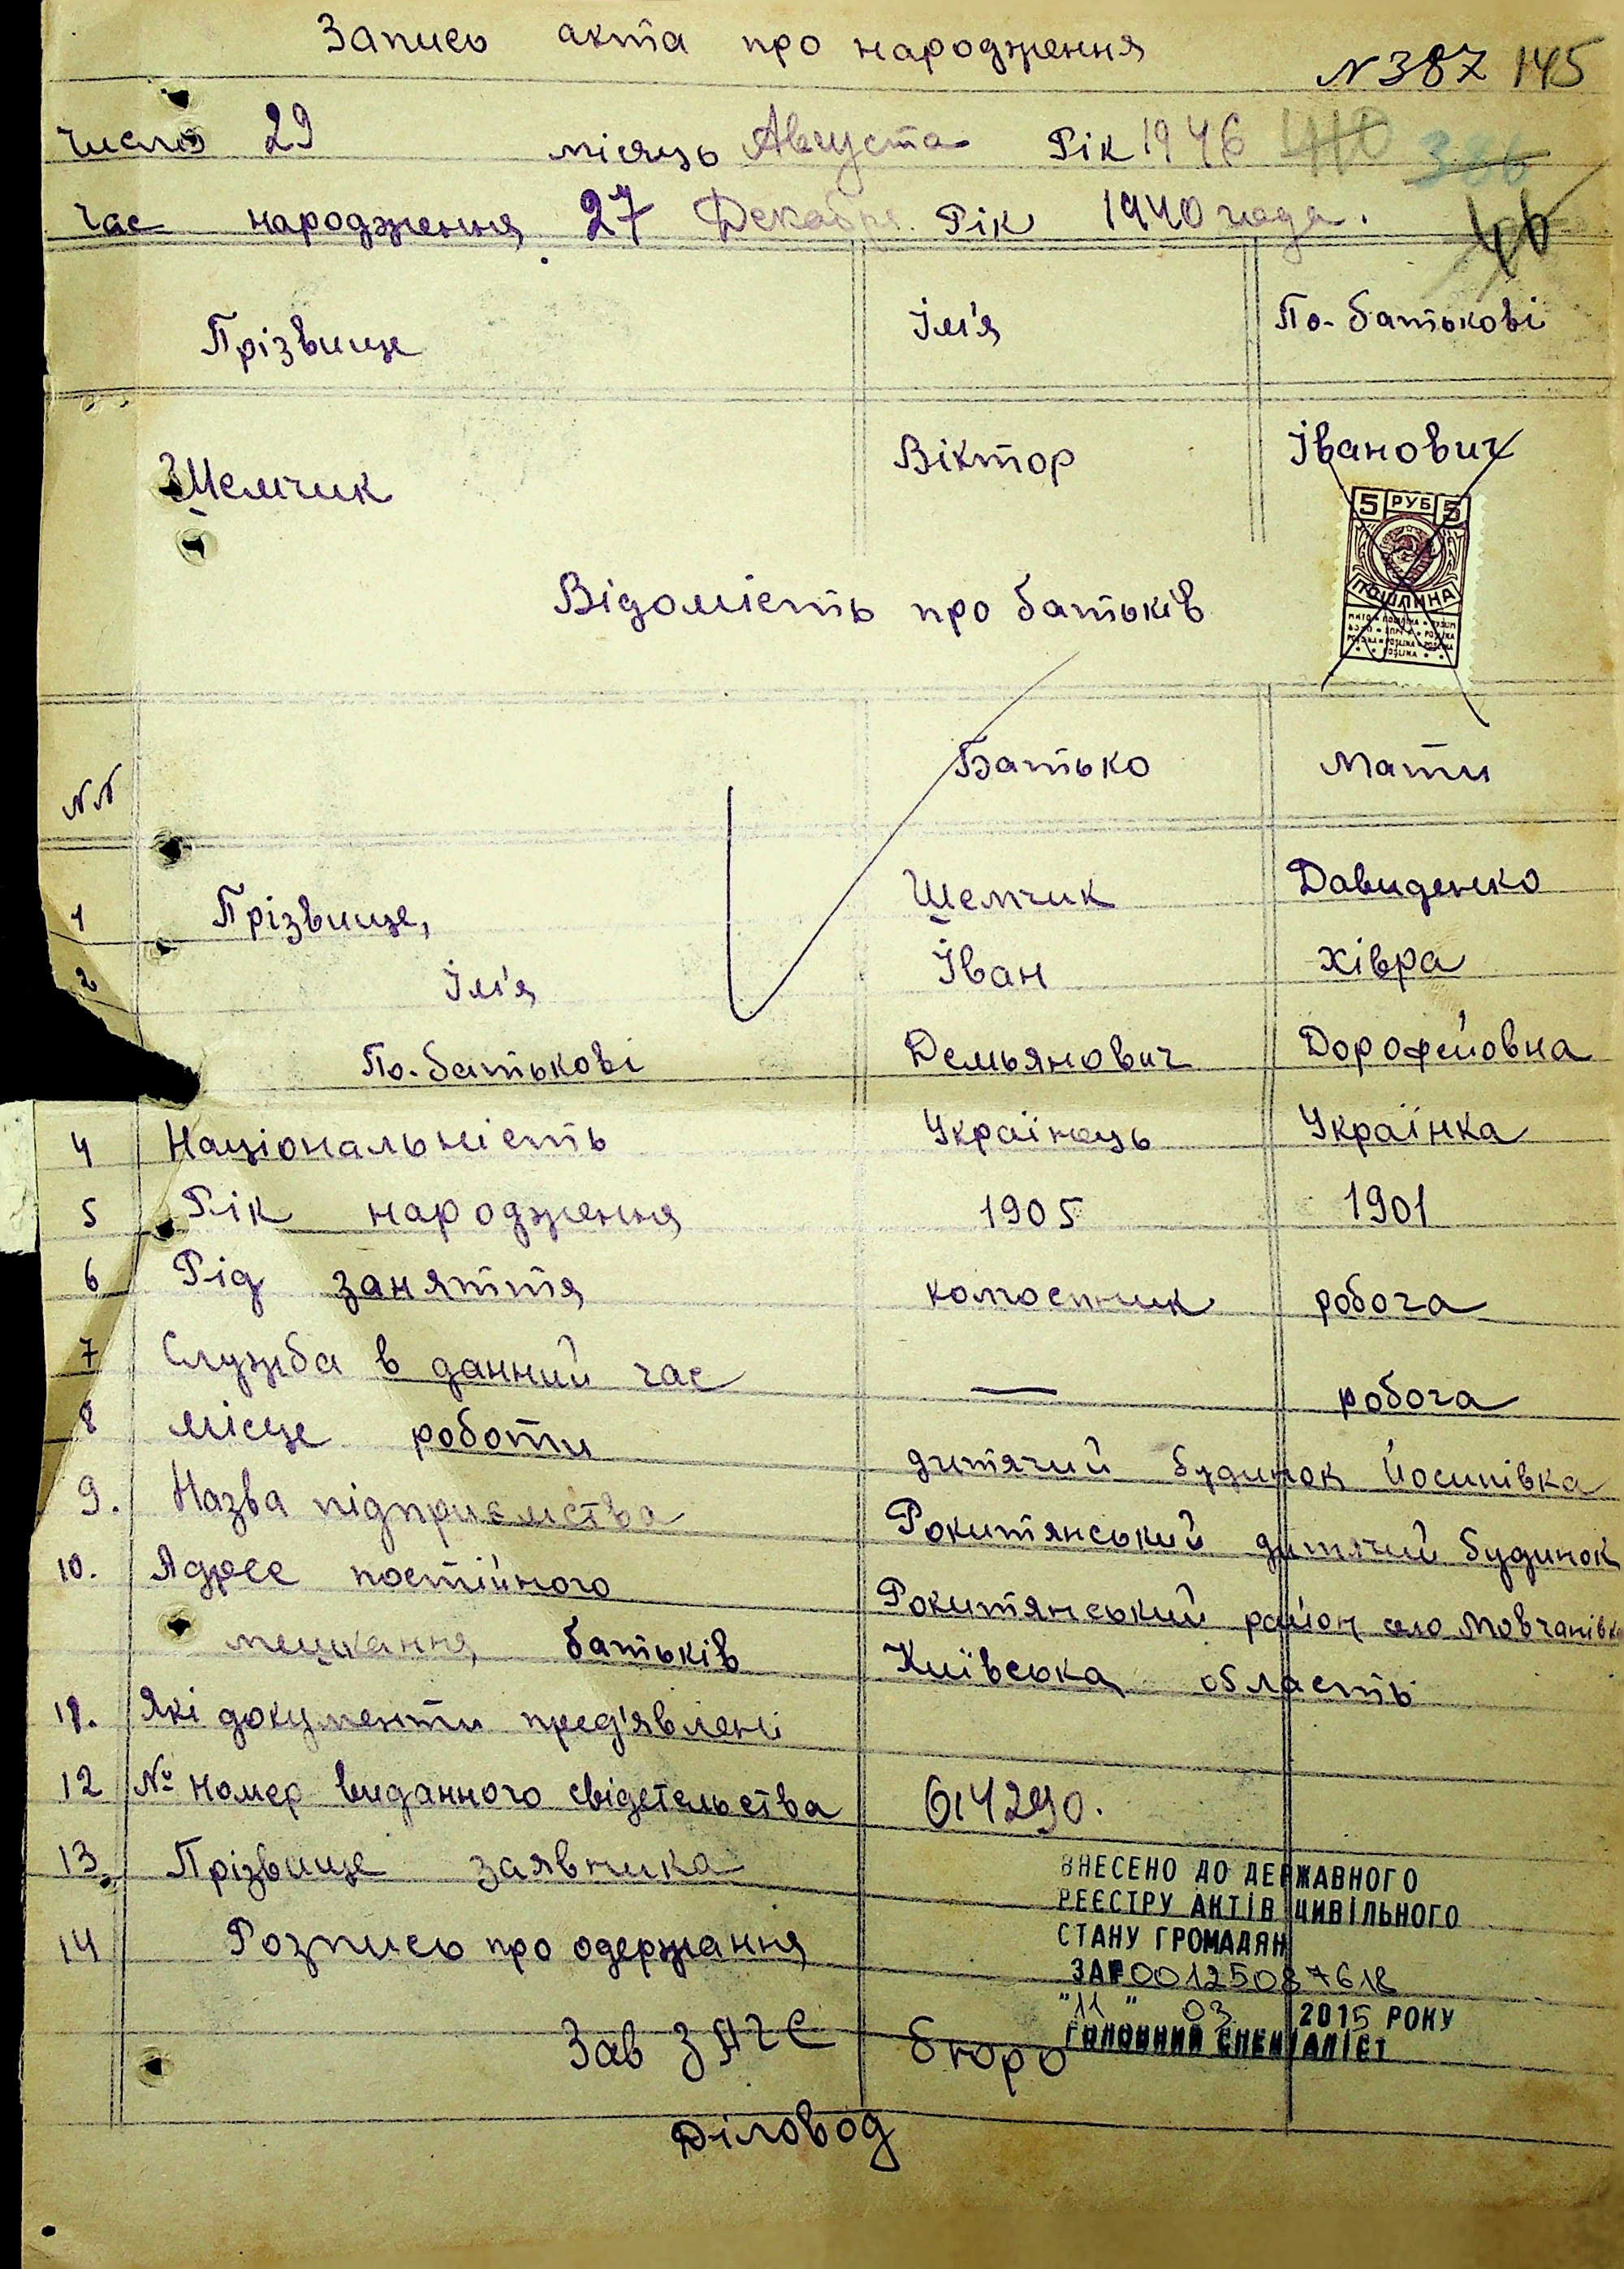 Запись акта про народження
№387 145
число 29 місяць Августа Рік 1946 410 386
час народження 27 Декабря Рік 1940 года. 46
Прізвище Ім'я По-батькові
Шемчик Віктор Іванович
5 РУБ 5
ПОШЛИНА
Відомість про батьків
№№ Батько Мати
1 Прізвище, Шемчик Давиденко
2 Ім'я Іван Хівра
По-батькові Демьянович Дорофейовна
4 Національність Українець Українка
5 Рік народження 1905 1901
6 Рід заняття робоча
7 Служба в данний час — робоча
8 місце роботи дитячий будинок Йосипівка
9. Назва підприємства Рокитянський дитячий будинок
10. Адрес постійного Рокитянський район село Мовчанівка
мешкання батьків Київська область
11. Які документи пред'явлені
12 № Номер виданного свідетельства 614290.
13. Прізвище заявника
14 Розпись про одержання
ВНЕСЕНО ДО ДЕРЖАВНОГО
РЕЄСТРУ АКТІВ ЦИВІЛЬНОГО
СТАНУ ГРОМАДЯН
ЗА № 00125087618
"11" 03 2015 РОКУ
ГОЛОВНИЙ СПЕЦІАЛІСТ
Зав ЗАГС бюро
Діловод